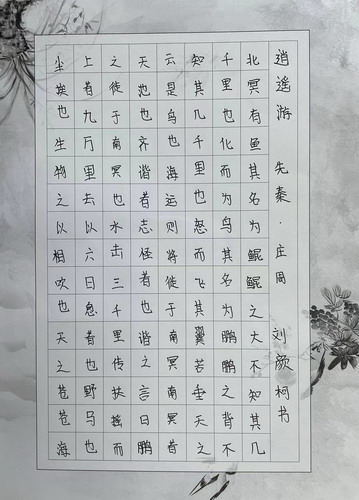 逍遥游 先秦·庄周 刘颜柯书
北冥有鱼其名为鲲鲲之大不知其几
千里也化而为鸟其名为鹏鹏之背不
知其几千里也怒而飞其翼若垂天之
云是鸟也海运则将徙于南冥南冥者
天池也齐谐者志怪者也谐之言曰鹏
之徙于南冥也水击三千里传扶摇而
上者九万里去以六日息者也野马也
尘埃也生物之以相吹也天之苍苍海